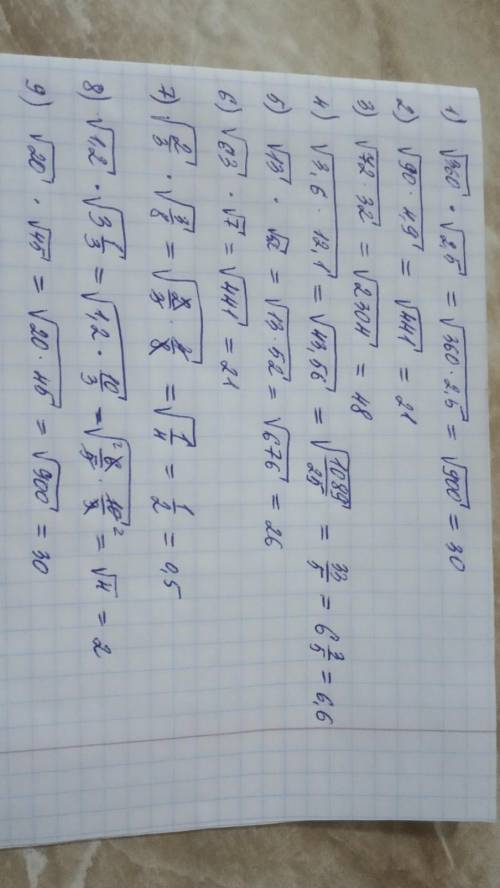 1) √360 · √2,5 = √360·2,5 = √900 = 30
2) √90·4,9 = √441 = 21
3) √72·32 = √2304 = 48
4) √3,6·12,1 = √43,56 = √1089/25 = 33/5 = 6 3/5 = 6,6
5) √13 · √52 = √13·52 = √676 = 26
6) √63 · √7 = √441 = 21
7) √2/3 · √3/8 = √2/3 · 3/8 = √1/4 = 1/2 = 0,5
8) √1,2 · √3 1/3 = √1,2 · 10/3 = √6/5 · 10/3 = √4 = 2
9) √20 · √45 = √20·45 = √900 = 30